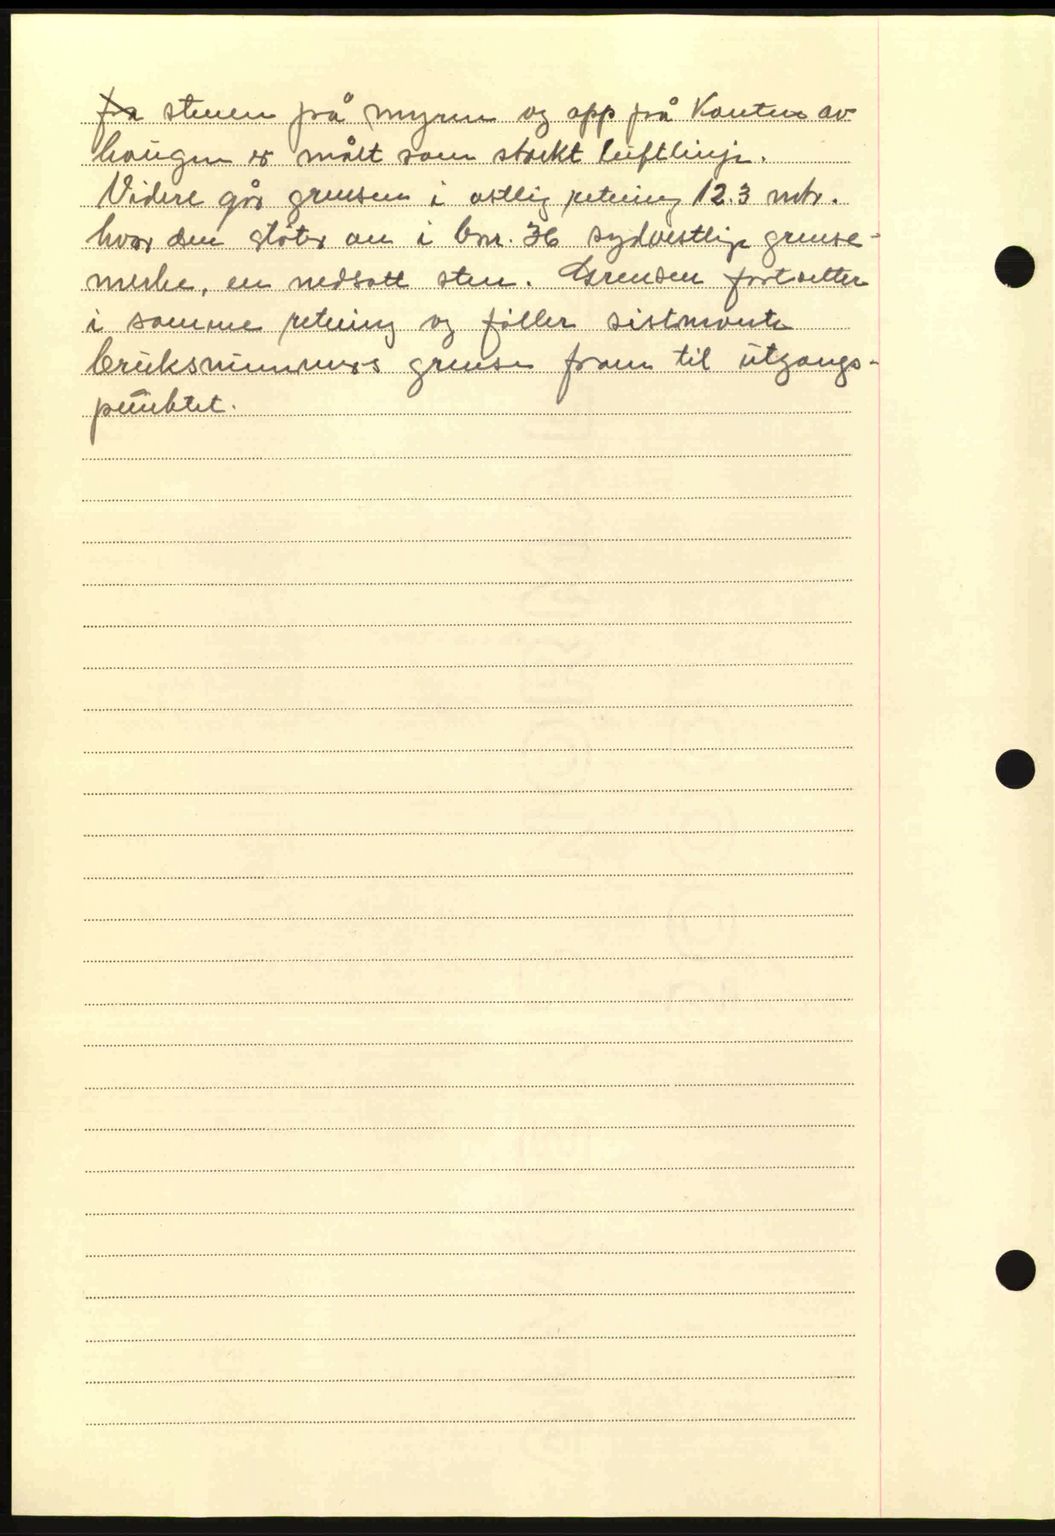 fra stenen på myren og opp på Kanten av
haugen er målt som strekt luftlinje.
Videre går grensen i østlig retning 12.3 mtr.
hvor den støter an i bnr. 36 sydvestlige grense-
merke, en nedsatt sten. Grensen fortsetter
i samme retning og føller sistnevnte
bruksnummers grense fram til utgangs-
punktet.